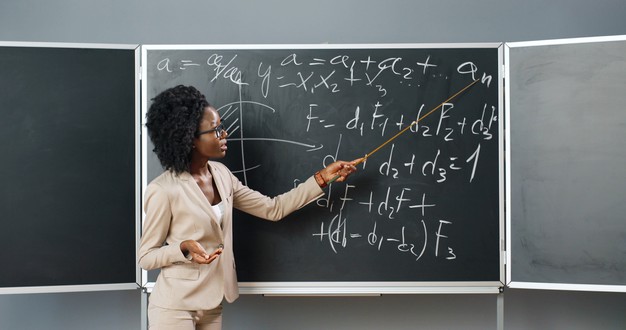 a = a/a
a = a₁ + a₂ + ... aₙ
y = x₁x₂ + x₃ ...
F = d₁F₁ + d₂F₂ + d₃
d + d₂ + d₃ = 1
d₁F + d₂F +
+ ( - d₁ - d₂) F₃